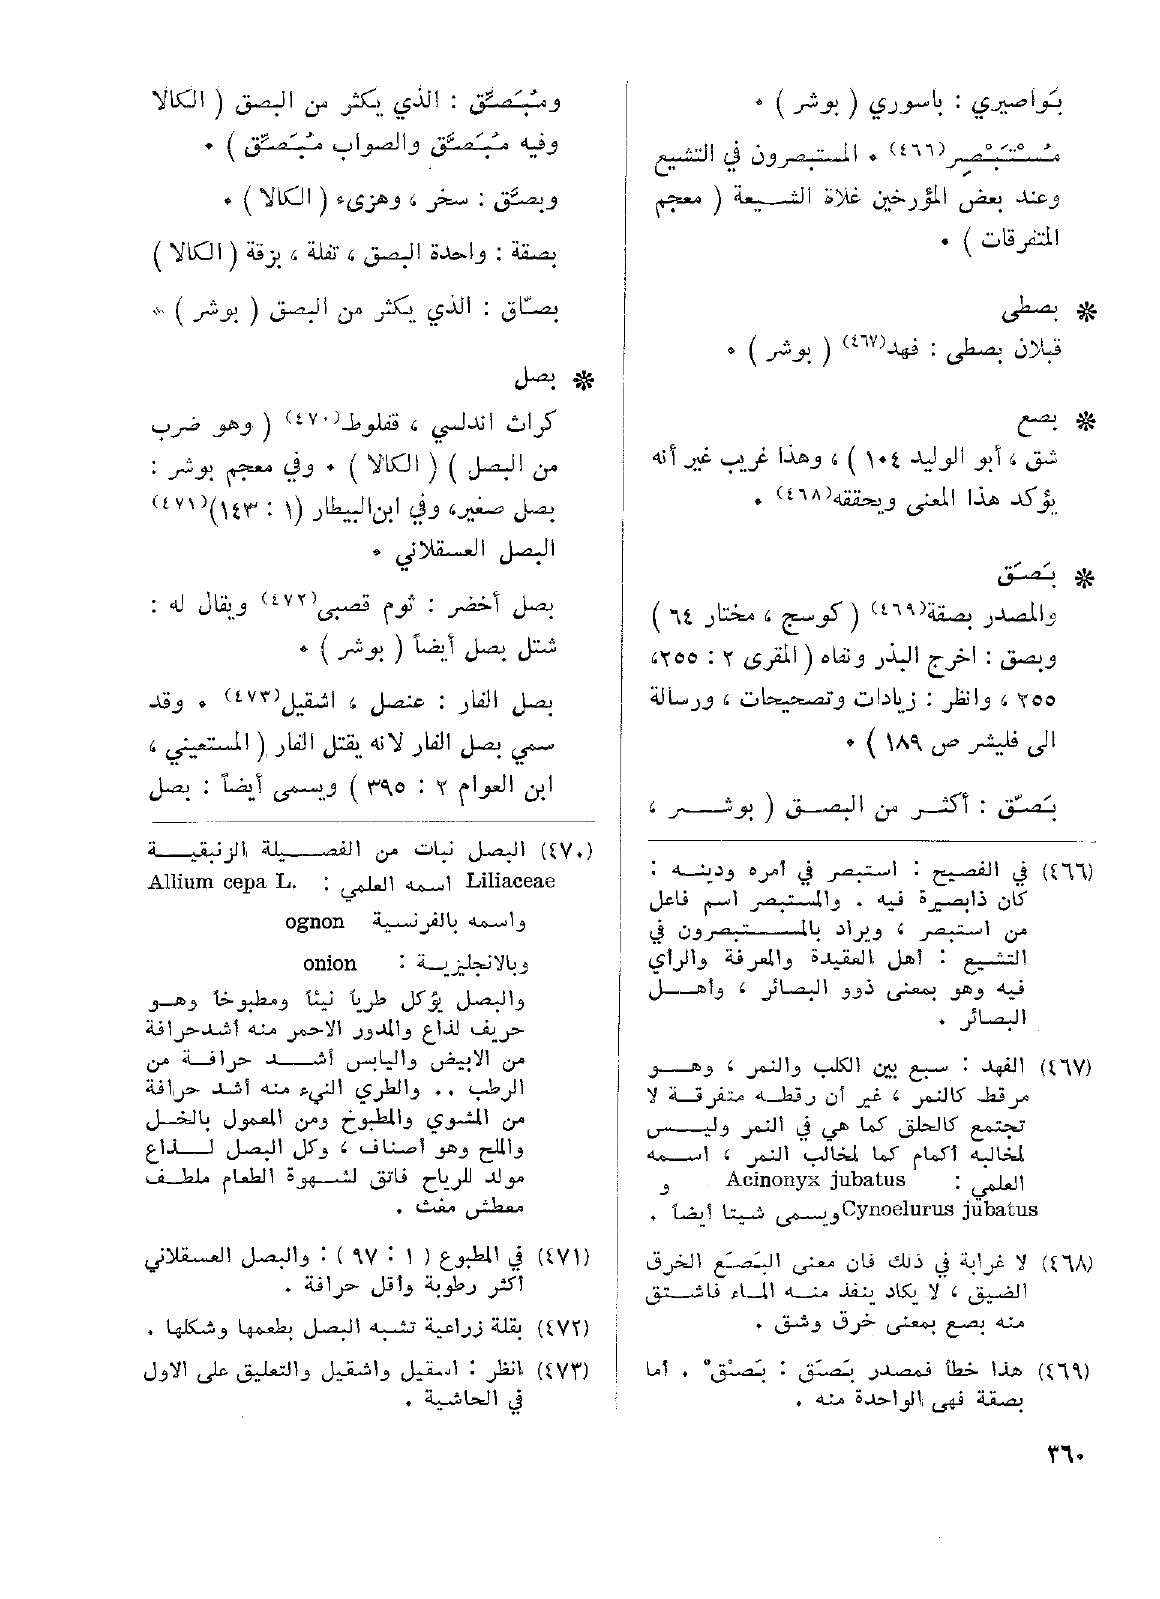 بَواصيري : باسوري ( بوشر ) ٠
مُسْتَبْصِر(٤٦٦) ٠ المستبصرون في التشيع
وعند بعض المؤرخين غلاة الشيعة ( معجم
المتفرقات ) ٠
❋ بصطى
قبلان بصطى : فهد(٤٦٧) ( بوشر ) ٠
❋ بصع
شق ، أبو الوليد ١٠٤ ) ، وهذا غريب غير أنه
يؤكد هذا المعنى ويحققه(٤٦٨) ٠
❋ بَصَق
والمصدر بصقة(٤٦٩) ( كوسج ، مختار ٦٤ )
وبصق : اخرج البذر ونفاه ( المقري ٢ : ٢٥٥،
٢٥٥ ، وانظر : زيادات وتصحيحات ، ورسالة
الى فليشر ص ١٨٩ ) ٠
بَصّق : أكثر من البصق ( بوشر ،
(٤٦٦) في الفصيح : استبصر في أمره ودينه :
كان ذابصيرة فيه . والمستبصر اسم فاعل
من استبصر ، ويراد بالمستبصرون في
التشيع : أهل العقيدة والمعرفة والرأي
فيه وهو بمعنى ذوو البصائر ، وأهل
البصائر .
(٤٦٧) الفهد : سبع بين الكلب والنمر ، وهو
مرقط كالنمر ، غير أن رقطه متفرقة لا
تجتمع كالحلق كما هي في النمر وليس
لمخالبه أكمام كما لمخالب النمر ، اسمه
العلمي : Acinonyx jubatus و
Cynoelurus jubatus ويسمى شيتا أيضاً .
(٤٦٨) لا غرابة في ذلك فان معنى البَصَع الخرق
الضيق ، لا يكاد ينفذ منه الماء فاشتق
منه بصع بمعنى خرق وشق .
(٤٦٩) هذا خطأ فمصدر بَصَق : بَصْق . أما
بصقة فهي الواحدة منه .
ومُبَصَّق : الذي يكثر من البصق ( الكالا
وفيه مُبَصَّق والصواب مُبَصِّق ) ٠
وبصَّق : سخر ، وهزىء ( الكالا ) ٠
بصقة : واحدة البصق ، تفلة ، بزقة ( الكالا )
بصّاق : الذي يكثر من البصق ( بوشر ) ٠
❋ بصل
كراث اندلسي ، قفلوط(٤٧٠) ( وهو ضرب
من البصل ) ( الكالا ) ٠ وفي معجم بوشر :
بصل صغير، وفي ابن البيطار (١ : ١٤٣)(٤٧١)
البصل العسقلاني ٠
بصل أخضر : ثوم قصبي(٤٧٢) ويقال له :
شتل بصل أيضاً ( بوشر ) ٠
بصل الفار : عنصل ، اشقيل(٤٧٣) ٠ وقد
سمي بصل الفار لانه يقتل الفار ( المستعيني ،
ابن العوام ٢ : ٣٩٥ ) ويسمى أيضاً : بصل
(٤٧٠) البصل نبات من الفصيلة الزنبقية
Liliaceae اسمه العلمي : Allium cepa L.
واسمه بالفرنسية ognon
وبالانجليزية : onion
والبصل يؤكل طرياً نيئاً ومطبوخاً وهو
حريف لذاع والمدور الاحمر منه أشد حرافة
من الابيض واليابس أشد حرافة من
الرطب .. والطري النيء منه أشد حرافة
من المشوي والمطبوخ ومن المعمول بالخل
والملح وهو أصناف ، وكل البصل لذاع
مولد للرياح فاتق لشهوة الطعام ملطف
معطش مغث .
(٤٧١) في المطبوع ( ١ : ٩٧ ) : والبصل العسقلاني
أكثر رطوبة وأقل حرافة .
(٤٧٢) بقلة زراعية تشبه البصل بطعمها وشكلها .
(٤٧٣) انظر : اسقيل واشقيل والتعليق على الاول
في الحاشية .
٣٦٠